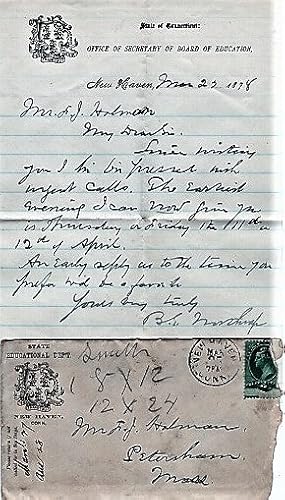 State of Connecticut:
OFFICE OF SECRETARY OF BOARD OF EDUCATION,
New Haven, Mar 27 1878
Mr F. J. Holman
My Dear Sir.
Since writing
you I be pressed with
urgent calls. The Earliest
evening I can now give you
is Thursday or Friday the 11th or
12th of April.
An Early reply as to the time you
prefer wd be a favor to
Yours very truly
B. G. Northrop
STATE
EDUCATIONAL DEPT
NEW HAVEN,
CONN.
8 X 12
12 X 24
NEW HAVEN
CONN.
Mr F. J. Holman.
Petersham.
Mass